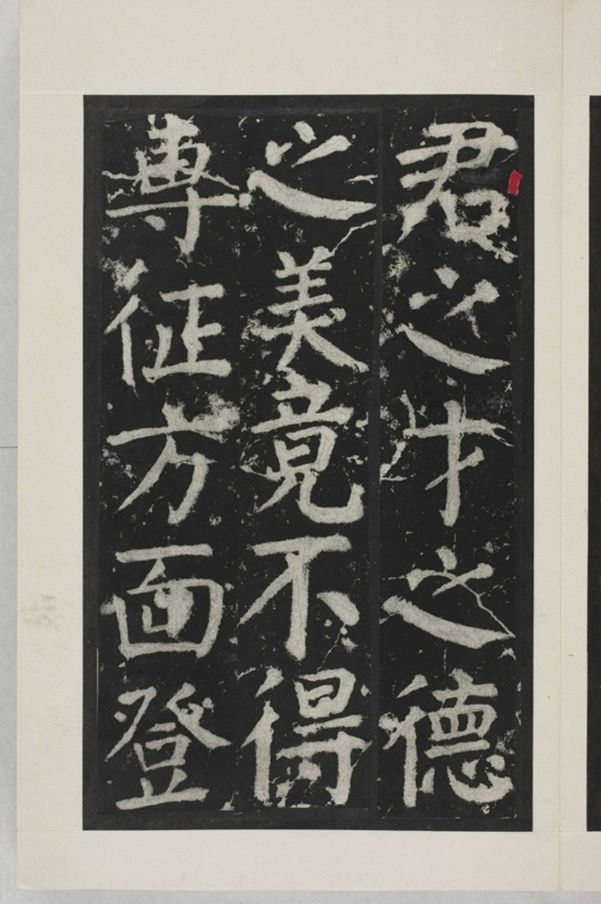 君之才之德
之美竟不得
專征方面登